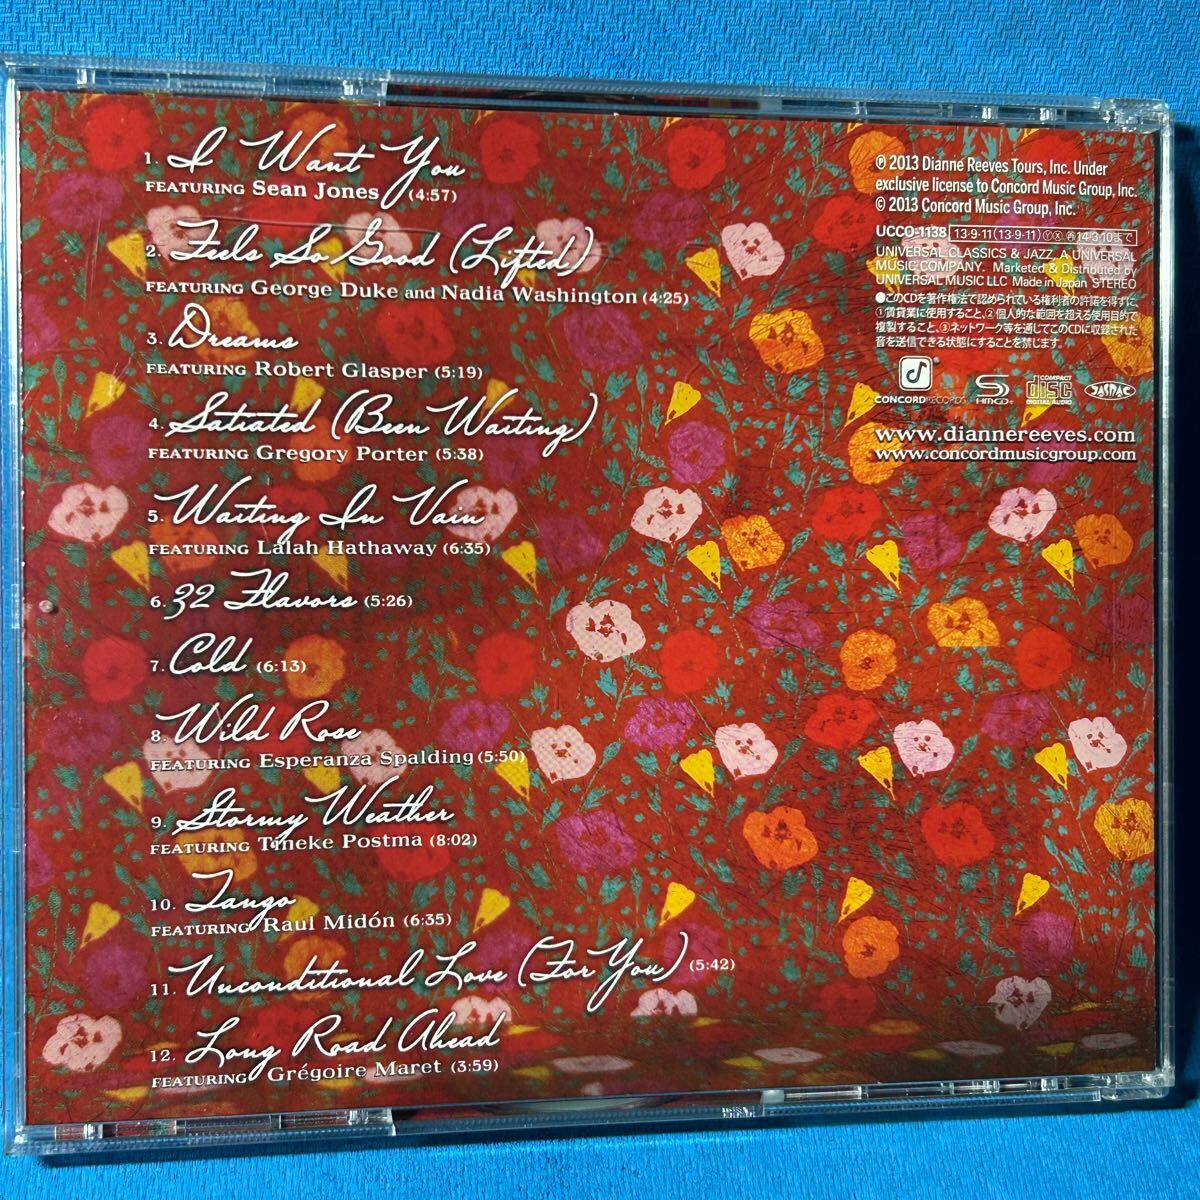 1. I Want You
FEATURING Sean Jones (4:57)
2. Feels So Good (Lifted)
FEATURING George Duke and Nadia Washington (4:25)
3. Dreams
FEATURING Robert Glasper (5:19)
4. Satiated (Been Waiting)
FEATURING Gregory Porter (5:38)
5. Waiting In Vain
FEATURING Lalah Hathaway (6:35)
6. 32 Flavors (5:26)
7. Cold (6:13)
8. Wild Rose
FEATURING Esperanza Spalding (5:50)
9. Stormy Weather
FEATURING Tineke Postma (8:02)
10. Tango
FEATURING Raul Midón (6:35)
11. Unconditional Love (For You) (5:42)
12. Long Road Ahead
FEATURING Grégoire Maret (3:59)
℗ 2013 Dianne Reeves Tours, Inc. Under
exclusive license to Concord Music Group, Inc.
© 2013 Concord Music Group, Inc.
UCCO-1138 13・9・11 (13・9・11) Ⓨ Ⓧ ㊢ 14・3・10まで
UNIVERSAL CLASSICS & JAZZ, A UNIVERSAL
MUSIC COMPANY. Marketed & Distributed by
UNIVERSAL MUSIC LLC Made in Japan STEREO
●このCDを著作権法で認められている権利者の許諾を得ずに、
①賃貸業に使用すること、②個人的な範囲を超える使用目的で
複製すること、③ネットワーク等を通じてこのCDに収録された
音を送信できる状態にすることを禁じます。
CONCORD RECORDS SHM-CD COMPACT disc DIGITAL AUDIO JASRAC
www.diannereeves.com
www.concordmusicgroup.com